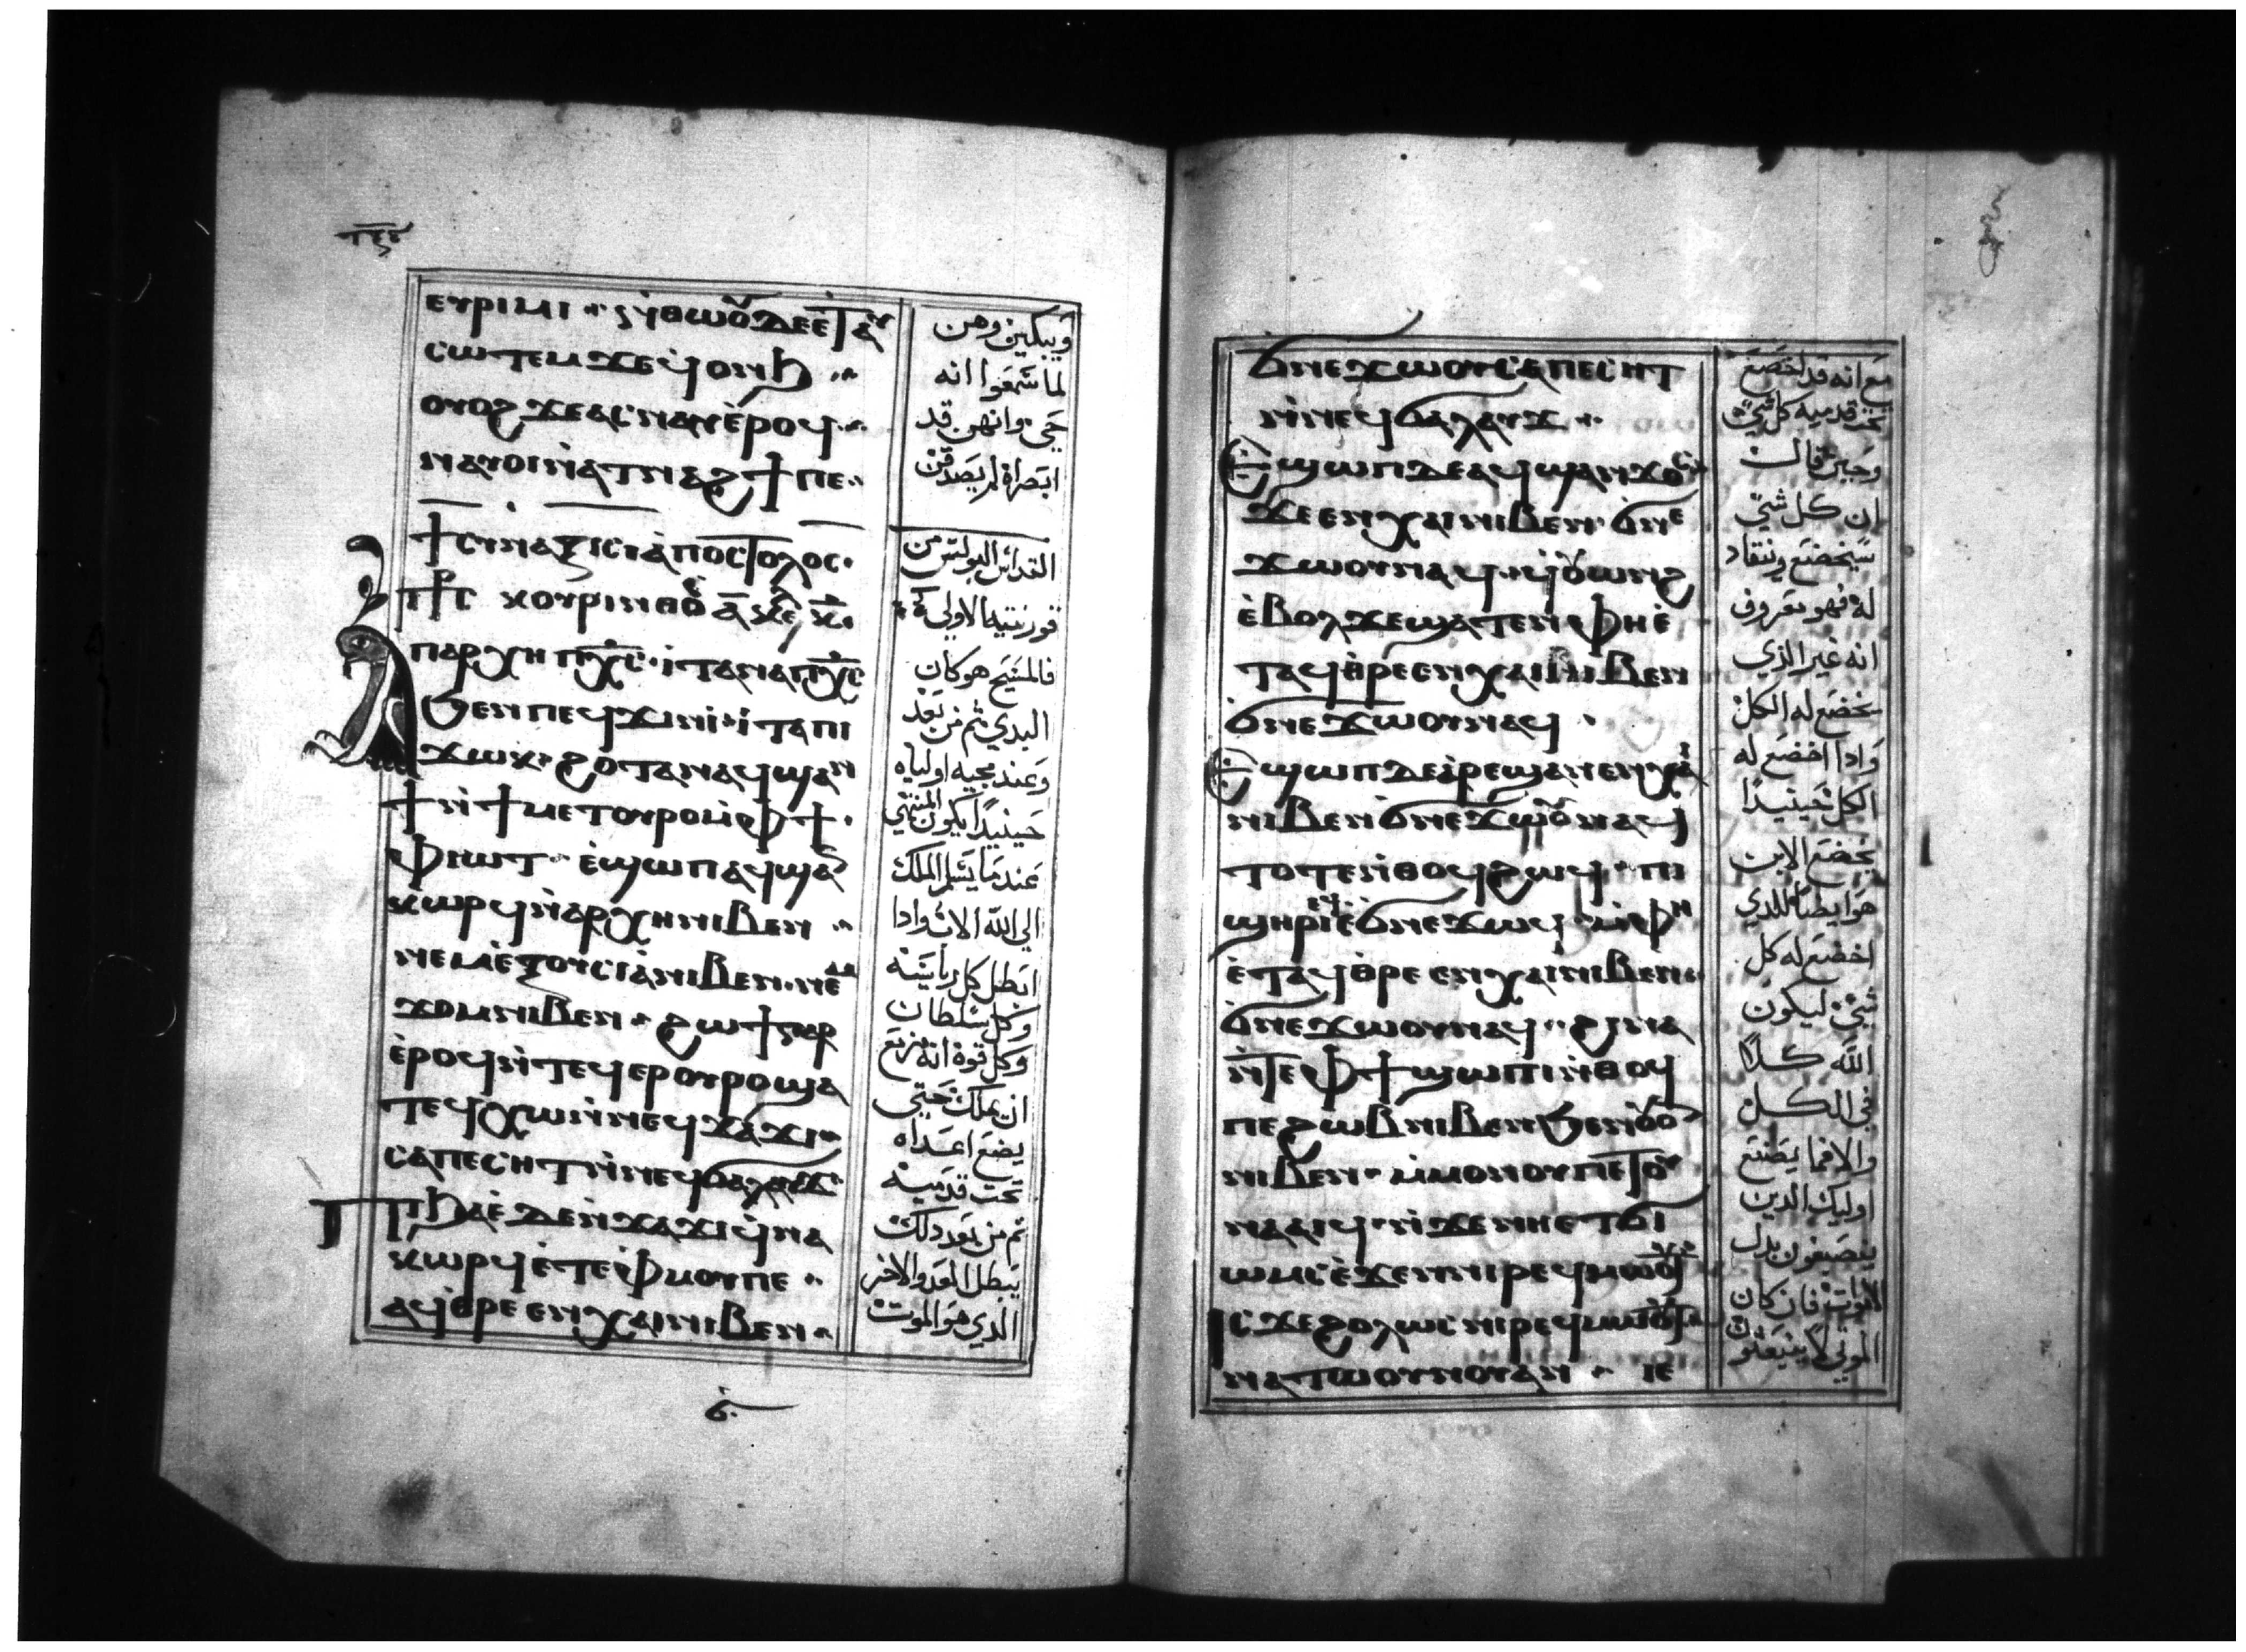 ⲉⲩⲣⲓⲙⲓ ⲛ̀ⲑⲱⲟⲩ ⲇⲉ ⲉⲧⲁⲩ
ⲥⲱⲧⲉⲙ ϫⲉ ϥ̀ⲟⲛϧ
ⲟⲩⲟϩ ϫⲉ ⲁⲥⲛⲁⲩ ⲉ̀ⲣⲟϥ
ⲛⲁⲩⲟⲓ ⲛ̀ⲁⲧⲛⲁϩϯ ⲡⲉ
ϯⲥⲩⲛⲁⲝⲓⲥ ⲓⲁ̀ⲡⲟⲥⲧⲟⲗⲟⲥ
ⲕⲟⲩⲣⲓⲛⲑⲟⲥ ⲁ̅
ⲡⲁⲣⲭⲏ ⲡⲭ̅ⲥ̅ ⲓⲧⲁ ⲛⲁ ⲡⲭ̅ⲥ̅
ϧⲉⲛ ⲡⲉϥϫⲓⲛⲓ̀ ⲓ̀ⲧⲁ ⲡⲓ
ϫⲱⲕ ϩⲟⲧⲁⲛ ⲁϥϣⲁⲛ
ϯ ⲛ̀ϯⲙⲉⲧⲟⲩⲣⲟ ⲙ̀ⲫϯ
ⲫⲓⲱⲧ ⲉ̀ϣⲱⲡ ⲁϥϣⲁⲛ
ⲕⲱⲣϥ ⲛ̀ⲁⲣⲭⲏ ⲛⲓⲃⲉⲛ
ⲛⲉⲙ ⲉ̀ⲝⲟⲩⲥⲓⲁ ⲛⲓⲃⲉⲛ ⲛⲉⲙ
ϫⲟⲙ ⲛⲓⲃⲉⲛ ϩⲱϯ ⲅⲁⲣ
ⲉ̀ⲣⲟϥ ⲛ̀ⲧⲉϥⲉⲣⲟⲩⲣⲟ ϣⲁ
ⲧⲉϥⲭⲱ ⲛ̀ⲛⲉϥϫⲁϫⲓ
ⲥⲁⲡⲉⲥⲏⲧ ⲛ̀ⲛⲉϥϭⲁⲗⲁⲩϫ
ⲡⲓϧⲁⲉ̀ ⲇⲉ ⲛ̀ϫⲁϫⲓ ϥ̀ⲛⲁ
ⲕⲱⲣϥ ⲉ̀ⲧⲉ ⲫ̀ⲙⲟⲩ ⲡⲉ
ⲁϥⲑⲣⲉ ⲉⲛⲭⲁⲓ ⲛⲓⲃⲉⲛ
ويبكين وهن
لما سمعوا انه
حي وانهن قد
ابصراه لم يصدقن
القداس البولس من
قورنتيه الاولي
فالمسيح هو كان
البدي ثم من بعد
وعند مجيه اولياه
حينيدا يكون المنتهي
عندما يسلم الملك
الي الله الاب وادا
ابطل كل رياسة
وكل سلطان
وكل قوة انه مزمع
ان يملك حتي
يضع اعداه
تحت قدميه
ثم من بعد دلك
يبطل العدو الاخر
الدي هو الموت
ϭⲛⲉϫⲱⲟⲩ ⲥⲁⲡⲉⲥⲏⲧ
ⲛ̀ⲛⲉϥϭⲁⲗⲁⲩϫ
ⲉϣⲱⲡ ⲇⲉ ⲁϥϣⲁⲛϫⲟⲥ
ϫⲉ ⲉⲛⲭⲁⲓ ⲛⲓⲃⲉⲛ ϭⲛⲉ
ϫⲱⲟⲩ ⲛⲁϥ ϥ̀ⲟⲩⲱⲛϩ
ⲉ̀ⲃⲟⲗ ϫⲉ ϣⲁⲧⲉⲛ ⲫⲏ ⲉ̀
ⲧⲁϥⲑⲣⲉ ⲉⲛⲭⲁⲓ ⲛⲓⲃⲉⲛ
ϭⲛⲉϫⲱⲟⲩ ⲛⲁϥ
ⲉϣⲱⲡ ⲇⲉ ⲁ̀ⲣⲉϣⲁⲛ ⲉⲛⲭⲁⲓ
ⲛⲓⲃⲉⲛ ϭⲛⲉϫⲱⲟⲩ ⲛⲁϥ
ⲧⲟⲧⲉ ⲛ̀ⲑⲟϥ ϩⲱϥ ⲡⲓ
ϣⲏⲣⲓ ⲉϥⲉ̀ϭⲛⲉϫⲱϥ ⲙ̀ⲫⲏ
ⲉ̀ⲧⲁϥⲑⲣⲉ ⲉⲛⲭⲁⲓ ⲛⲓⲃⲉⲛ
ϭⲛⲉϫⲱⲟⲩ ⲛⲁϥ ϩⲓⲛⲁ
ⲛ̀ⲧⲉ ⲫϯ ϣⲱⲡⲓ ⲛ̀ⲑⲟϥ
ⲡⲉ ϩⲱⲃ ⲛⲓⲃⲉⲛ ϧⲉⲛ ⲟⲩⲟⲛ
ⲛⲓⲃⲉⲛ ⲙ̀ⲙⲟⲛ ⲟⲩ ⲡⲉⲧⲟⲩ
ⲛⲁⲁⲓϥ ⲛ̀ϫⲉ ⲛⲏ ⲉⲧϭⲓ
ⲱⲙⲥ ⲉ̀ϫⲉⲛ ⲛⲓⲣⲉϥⲙⲱⲟⲩⲧ
ⲓⲥϫⲉ ϩⲟⲗⲱⲥ ⲛⲓⲣⲉϥⲙⲱⲟⲩⲧ
ⲛⲁⲧⲱⲟⲩⲛⲟⲩ ⲁⲛ ⲓⲉ
مع انه قد اخضع
تحت قدميه كل شي
وحين قالت
ان كل شي
سيخضع وينقاد
له فهو معروف
انه غير الذي
يخضع له الكل
وادا اخضع له
الكل حينيدا
يخضع الابن
هو ايضا للدي
اخضع له كل
شي ليكون
الله كلا
في الكل
والا فما يصنع
اوليك الدين
ينصبغون بدل
الاموات فان كان
الموتي لا ينبعثون